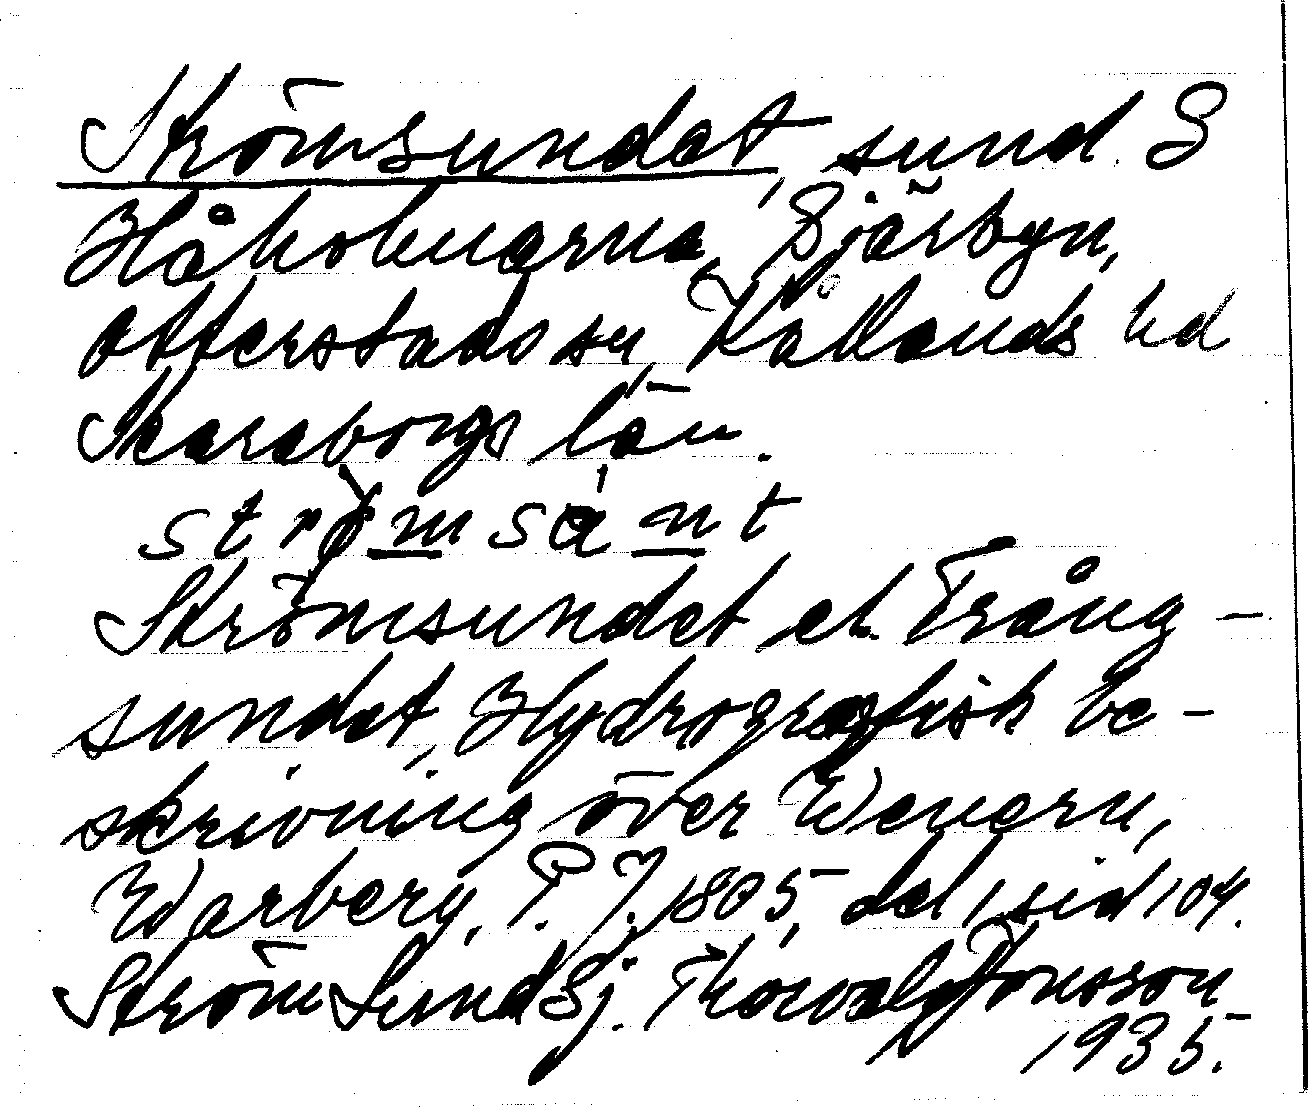 Strömsundet, sund S
Håholmarna, Spjärbyn,
Otterstads sn, Kållands hd
Skaraborgs län.
strömsänt
Strömsundet el. Trång-
sundet, Hydrografisk be-
skrivning över Wenern,
Warberg, P. J. 1805, del 1, sid 104.
StrömSund Sj. Thorvald Jonsson
1935.